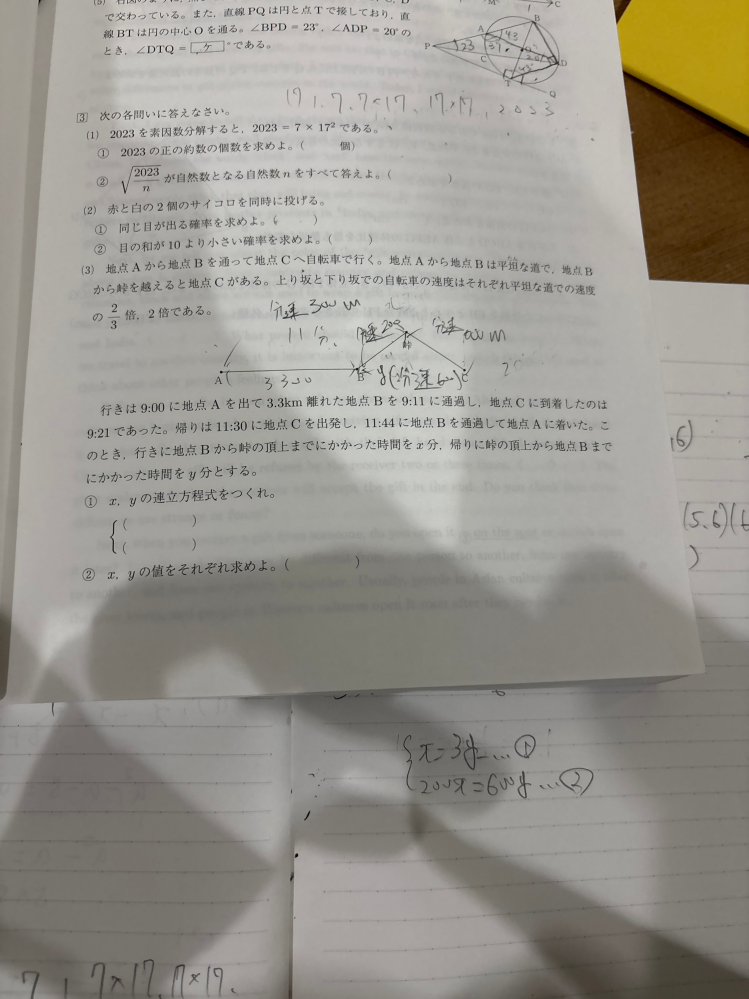 で交わっている。また，直線PQは円と点Tで接しており，直
線BTは円の中心Oを通る。∠BPD = 23°，∠ADP = 20°の
とき，∠DTQ = ケ °である。
P 23 A 43 B C D T Q
17 1, 7, 7×17, 17×17, 2023
3 次の各問いに答えなさい。
(1) 2023を素因数分解すると，2023 = 7 × 17²である。
① 2023の正の約数の個数を求めよ。( 個)
② √2023/n が自然数となる自然数nをすべて答えよ。( )
(2) 赤と白の2個のサイコロを同時に投げる。
① 同じ目が出る確率を求めよ。( )
② 目の和が10より小さい確率を求めよ。( )
(3) 地点Aから地点Bを通って地点Cへ自転車で行く。地点Aから地点Bは平坦な道で，地点B
から峠を越えると地点Cがある。上り坂と下り坂での自転車の速度はそれぞれ平坦な道での速度
の 2/3 倍，2倍である。
分速300m
11分
分速200 峠 分速600m
A 3300 B y(分速600) C
行きは9:00に地点Aを出て3.3km離れた地点Bを9:11に通過し，地点Cに到着したのは
9:21であった。帰りは11:30に地点Cを出発し，11:44に地点Bを通過して地点Aに着いた。こ
のとき，行きに地点Bから峠の頂上までにかかった時間をx分，帰りに峠の頂上から地点Bまで
にかかった時間をy分とする。
① x，yの連立方程式をつくれ。
( )
( )
② x，yの値をそれぞれ求めよ。( )
(5.6)(6
x=3y…①
200x=600y…②
7, 1, 7×17, 17×17,